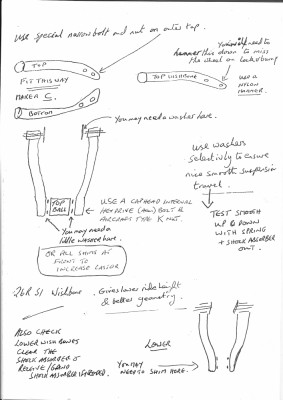 USE special narrow bolt and nut on outer top.
TOP
FIT THIS WAY
MAKES C.
BOTTOM
You may need to
hammer this down to miss
the wheel on lock or bump
TOP WISHBONE
USE A
NYLON
HAMMER.
You may need a washer here.
use washers
selectively to ensure
nice smooth suspension
travel.
TOP
BALL
USE A CAPHEAD INTERNAL
HEX DRIVE (Allen) BOLT &
AIRCRAFT TYPE K NUT.
You may need a
little washer here.
OR ADD SHIMS AT
FRONT TO
INCREASE CASTOR
TEST SMOOTH
UP & DOWN
WITH SPRING
+ SHOCK ABSORBER
OUT.
Wishbone. Gives lower ride height
& better geometry.
ALSO CHECK
LOWER WISHBONES
CLEAR THE
SHOCK ABSORBERS
SHOCK ABSORBER IF NEEDED.
LOWER
YOU MAY
NEED TO SHIM HERE.